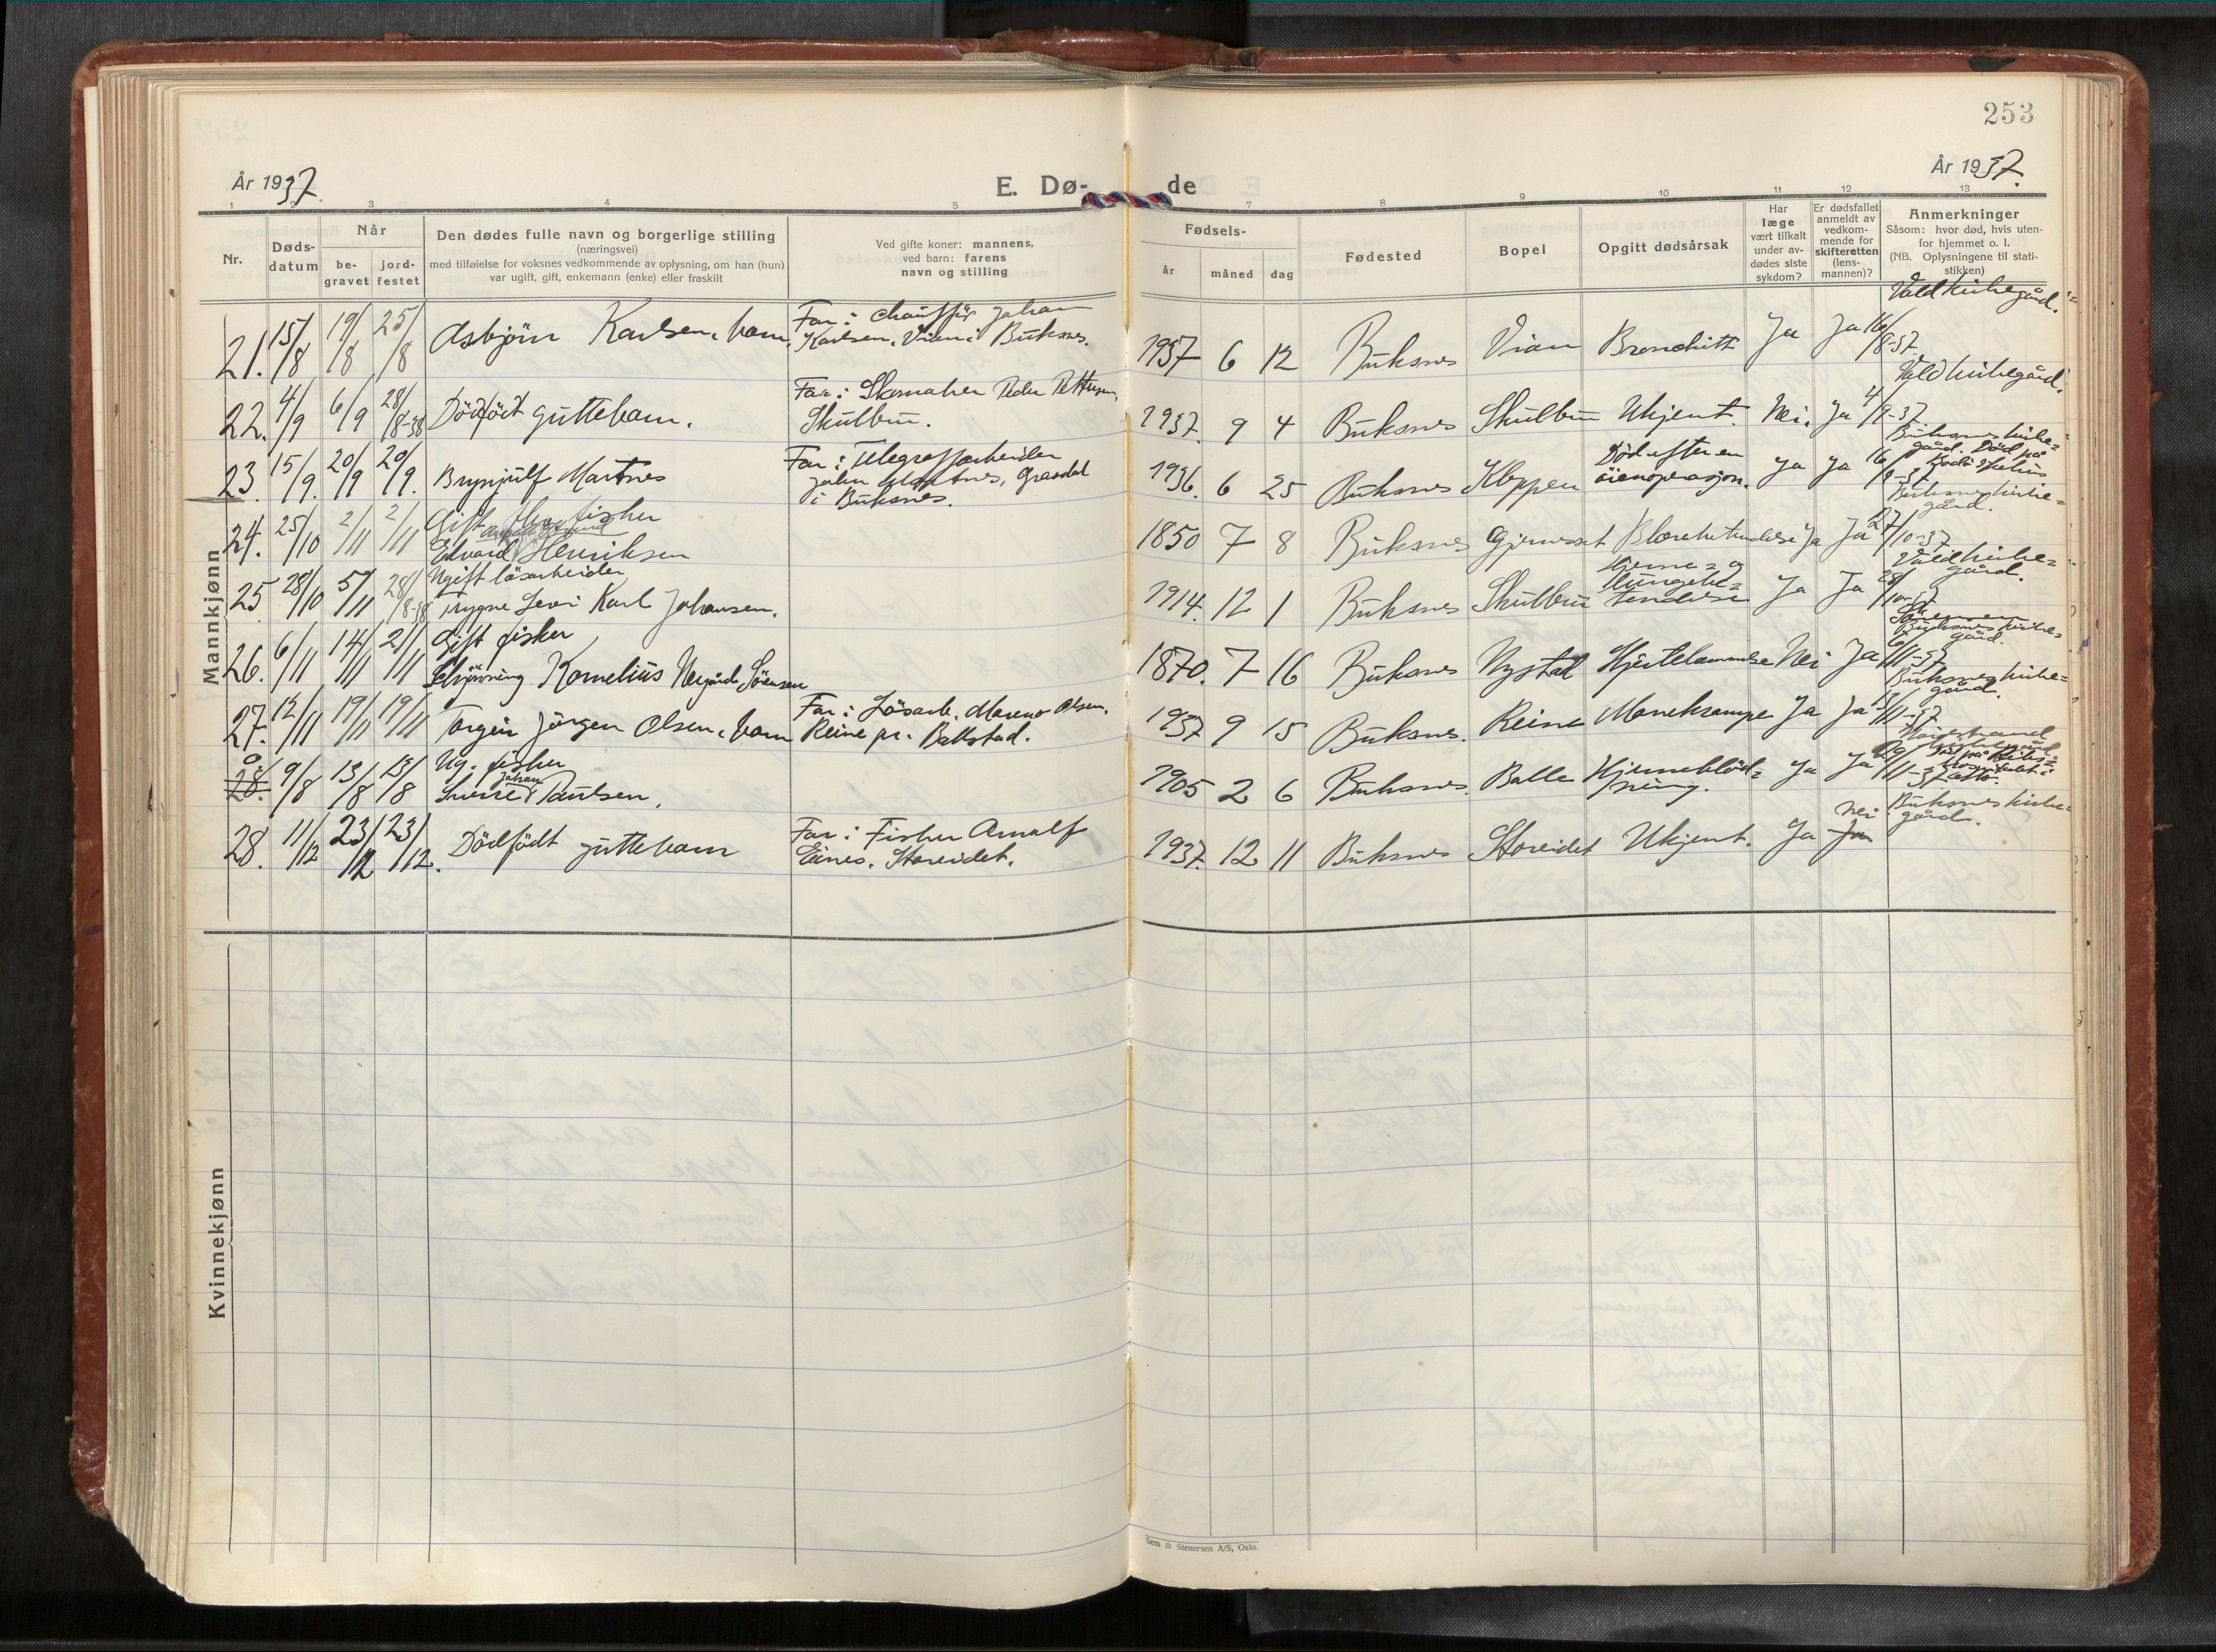 253
År 1937.
År 1937.
E. Dø- de
1 2 3 4 5 7 8 9 10 11 12 13
Nr.
Døds-
datum
Når
be-
gravet
jord-
festet
Den dødes fulle navn og borgerlige stilling
(næringsvei)
med tilføielse for voksnes vedkommende av oplysning, om han (hun)
var ugift, gift, enkemann (enke) eller fraskilt
Ved gifte koner: mannens,
ved barn: farens
navn og stilling
Fødsels-
år måned dag
Fødested
Bopel
Opgitt dødsårsak
Har
læge
vært tilkalt
under av-
dødes siste
sykdom?
Er dødsfallet
anmeldt av
vedkom-
mende for
skifteretten
(lens-
mannen)?
Anmerkninger
Såsom: hvor død, hvis uten-
for hjemmet o. l.
(NB. Oplysningene til stati-
stikken)
Mannkjønn
21. 15/8 19/8 25/8 Asbjörn Karlsen, barn.
Far: chauffør Johan
Karlsen, Vian i Buksnes.
1937 6 12 Buksnes Vian Bronchitt Ja Ja 16/8-37
Vold kirkegård.
22. 4/9 6/9 28/8-38 Dödfödt guttebarn.
Far: Skomaker Peder Pettersen,
Skulbru.
1937. 9 4 Buksnes Skulbru Ukjent. Nei. Ja 4/9-37
Vold kirkegård.
23. 15/9. 20/9 20/9. Brynjulf Martnes
Far: Telegrafarbeider
John Martnes, Gravdal
i Buksnes.
1936. 6 25 Buksnes Kleppen
Död efter en
öienoperasjon.
Ja Ja 16/9-37
Buksnes kirke=
gård. Död på
Bodö sykehus
24. 25/10 2/11 2/11 Gift fisker
Edvard Henriksen
1850 7 8 Buksnes Gjerneset Blærebetendelse Ja Ja 27/10-37
Buksnes kirke=
gård.
25 28/10 5/11 28/8-38 Ugift lösarbeider
Trygve Levi Karl Johansen.
1914. 12 1 Buksnes Skulbru
Hjerne= og
lungebe=
tendelse
Ja Ja 28/10-37
Vold kirke=
gård.
26. 6/11 14/11 21/11 Gift fisker
Kornelius Nergård Sörensen
1870. 7 16 Buksnes Nystad Hjertelammelse Nei Ja 6/11-37
Buksnes kirke=
gård.
27. 12/11 19/11 19/11 Torgeir Jörgen Olsen, barn
Far: Lösarb. Marenor Olsen.
Reine pr. Ballstad.
1937 9 15 Buksnes. Reine Mavekrampe Ja Ja 13/11-37
Buksnes kirke=
gård.
0. 28. 9/8 13/8 13/8 Ug. fisker
Johan
Sverre Paulsen.
1905 2 6 Buksnes. Balle
Hjerneblöd=
ning.
Ja Ja
28. 11/12 23/12 23/12. Dödfödt guttebarn
Far: Fisker Arnulf
Eines, Storeidet.
1937. 12 11 Buksnes Storeidet Ukjent. Ja Ja Nei
Buksnes kirke=
gård.
Kvinnekjønn
Sem & Stenersen A/S, Oslo.